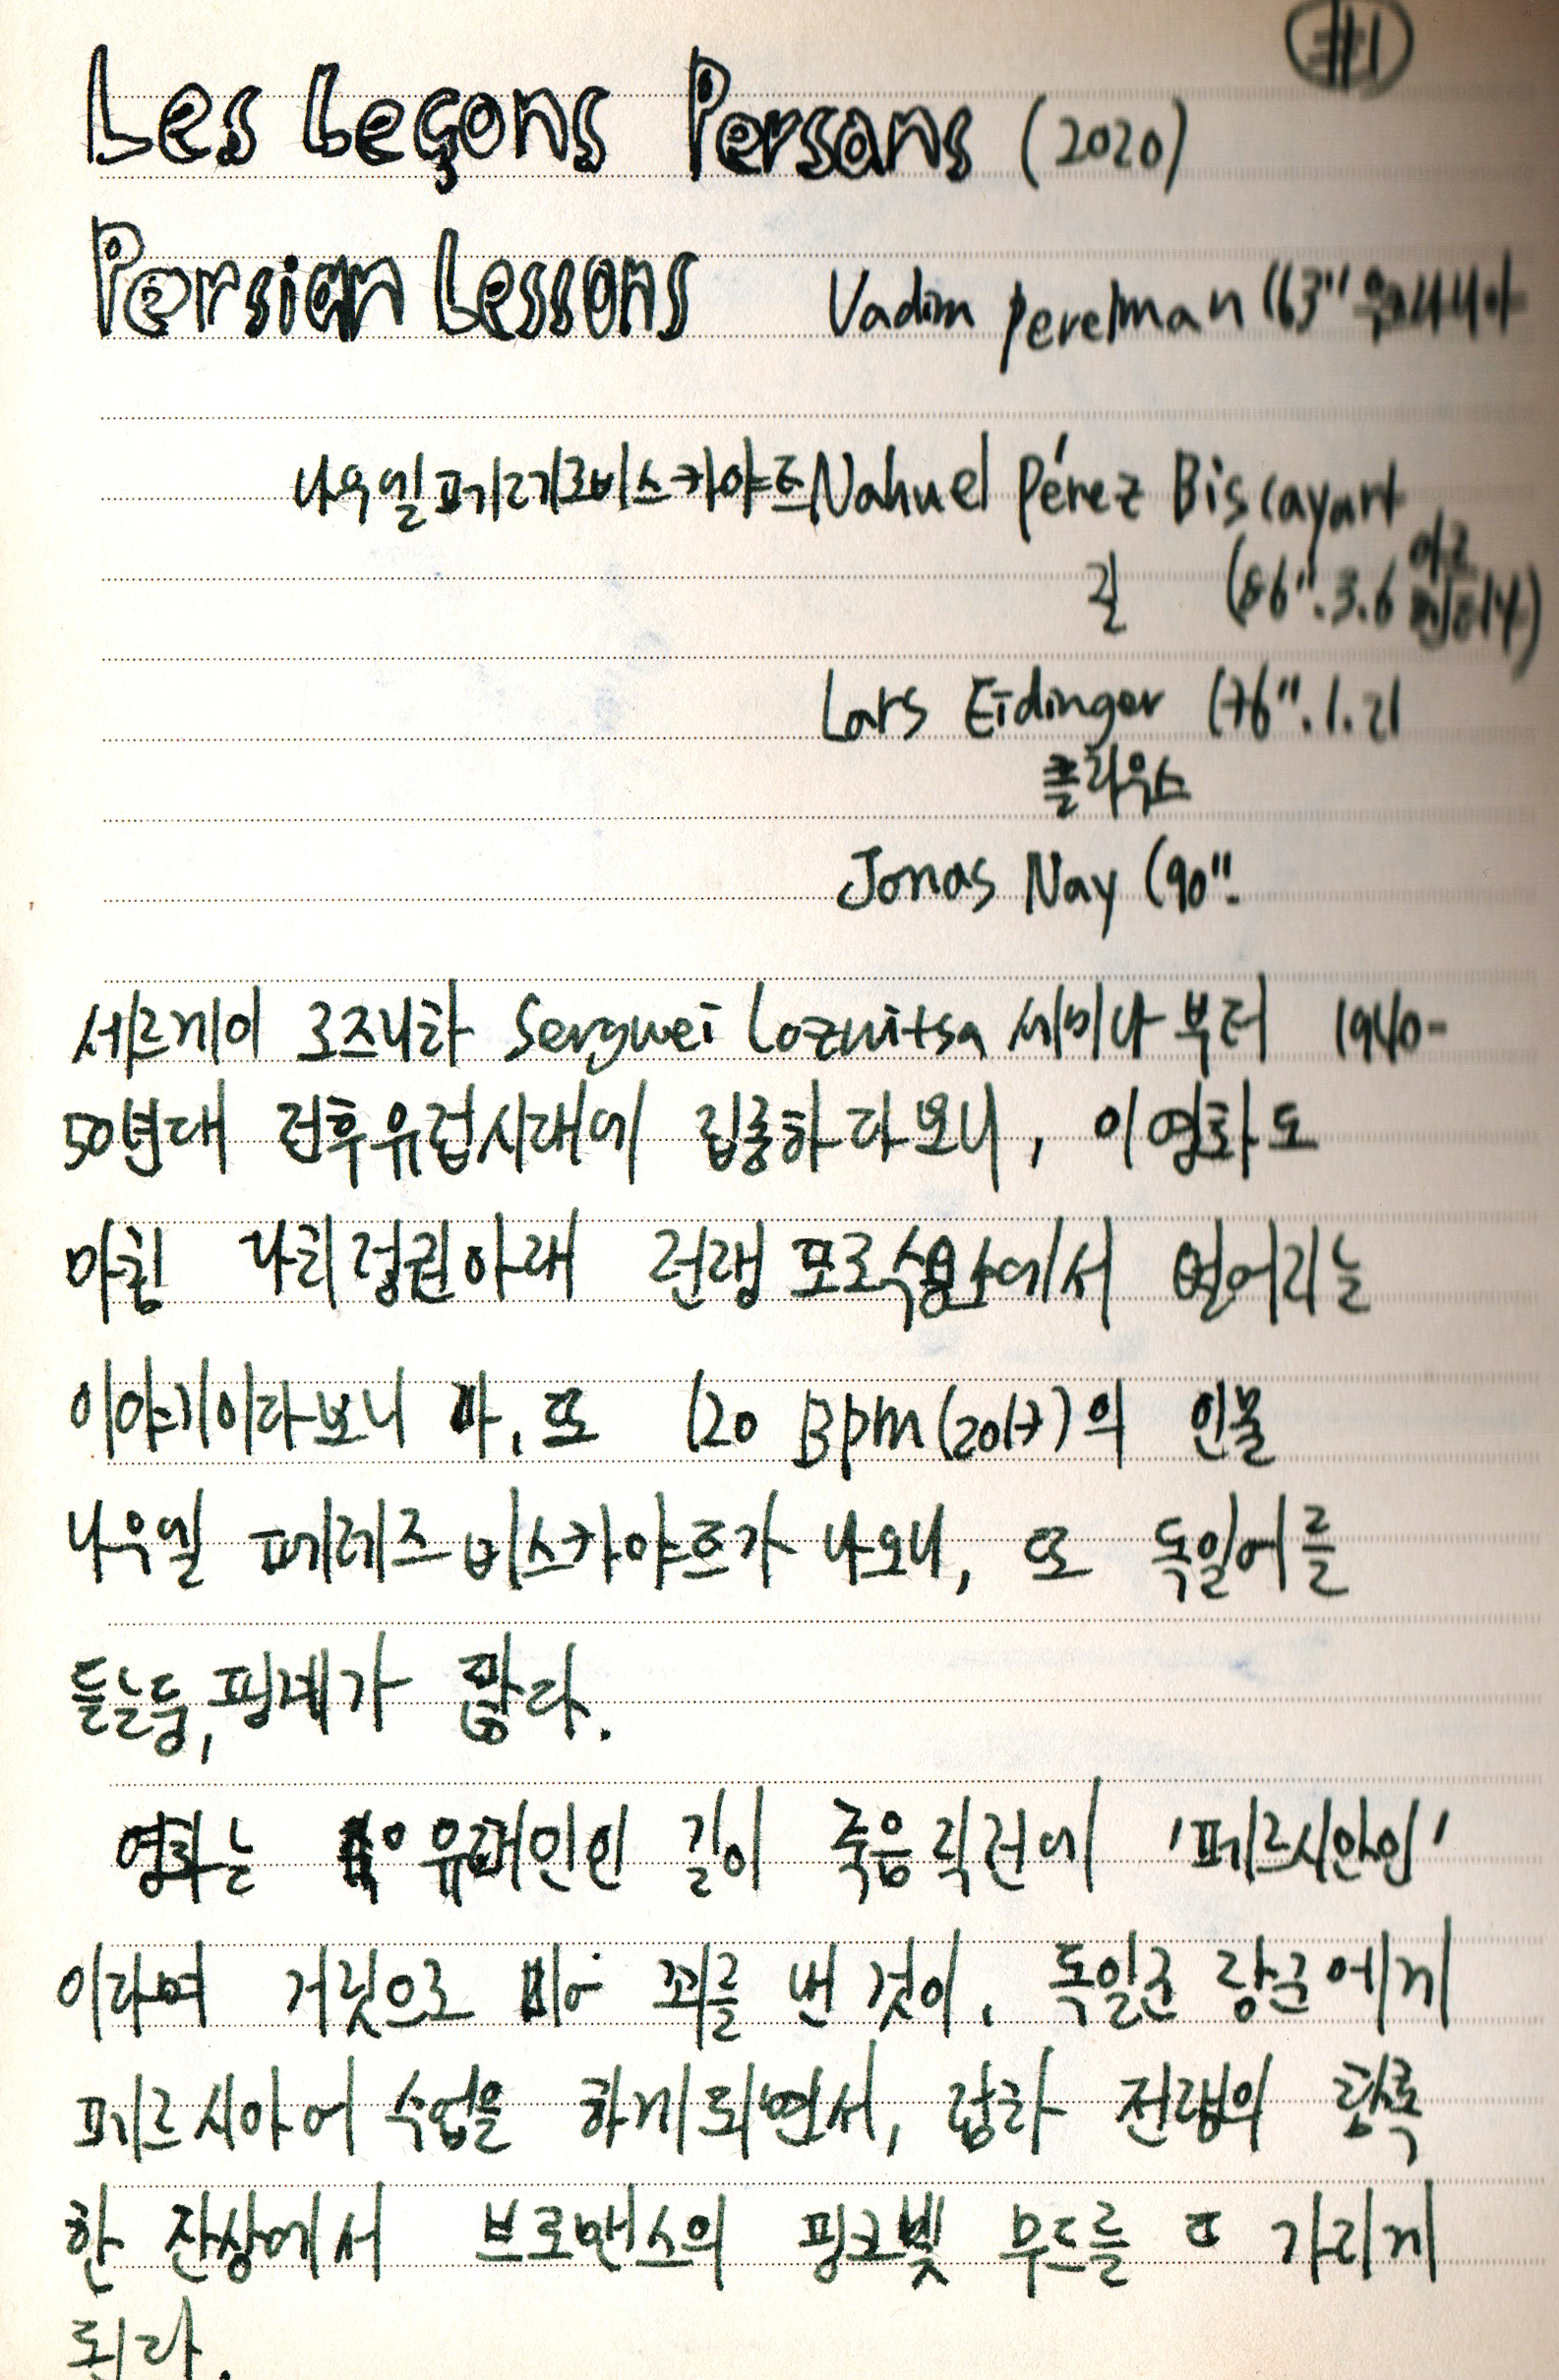 #1
Les Leçons Persans (2020)
Persian Lessons Vadim perelman (63" 우크라이나
나우엘 페레즈 비스카야르트 Nahuel Pérez Biscayart
질 (86".3.6 아르헨티나)
Lars Eidinger (76".1.21
클라우스
Jonas Nay (90".
세르게이 로즈니차 Serguei Loznitsa 세미나부터 1940-
50년대 전후유럽시대에 집중하다보니, 이영화도
마침 나치정권아래 전쟁포로수용소에서 벌어지는
이야기이다보니 까, 또 120 Bpm(2017)의 인물
나우엘 페레즈 비스카야르트가 나오니, 또 독일어를
듣는둥, 핑계가 많다.
영화는 유태인인 질이 죽음직전에 '페르시안인'
이라며 거짓으로 꾀를 낸 것이, 독일군 장군에게
페르시아어 수업을 하게되면서, 갑자 전쟁의 참혹
한 잔상에서 브로맨스의 핑크빛 무드를 또 가지게
된다.